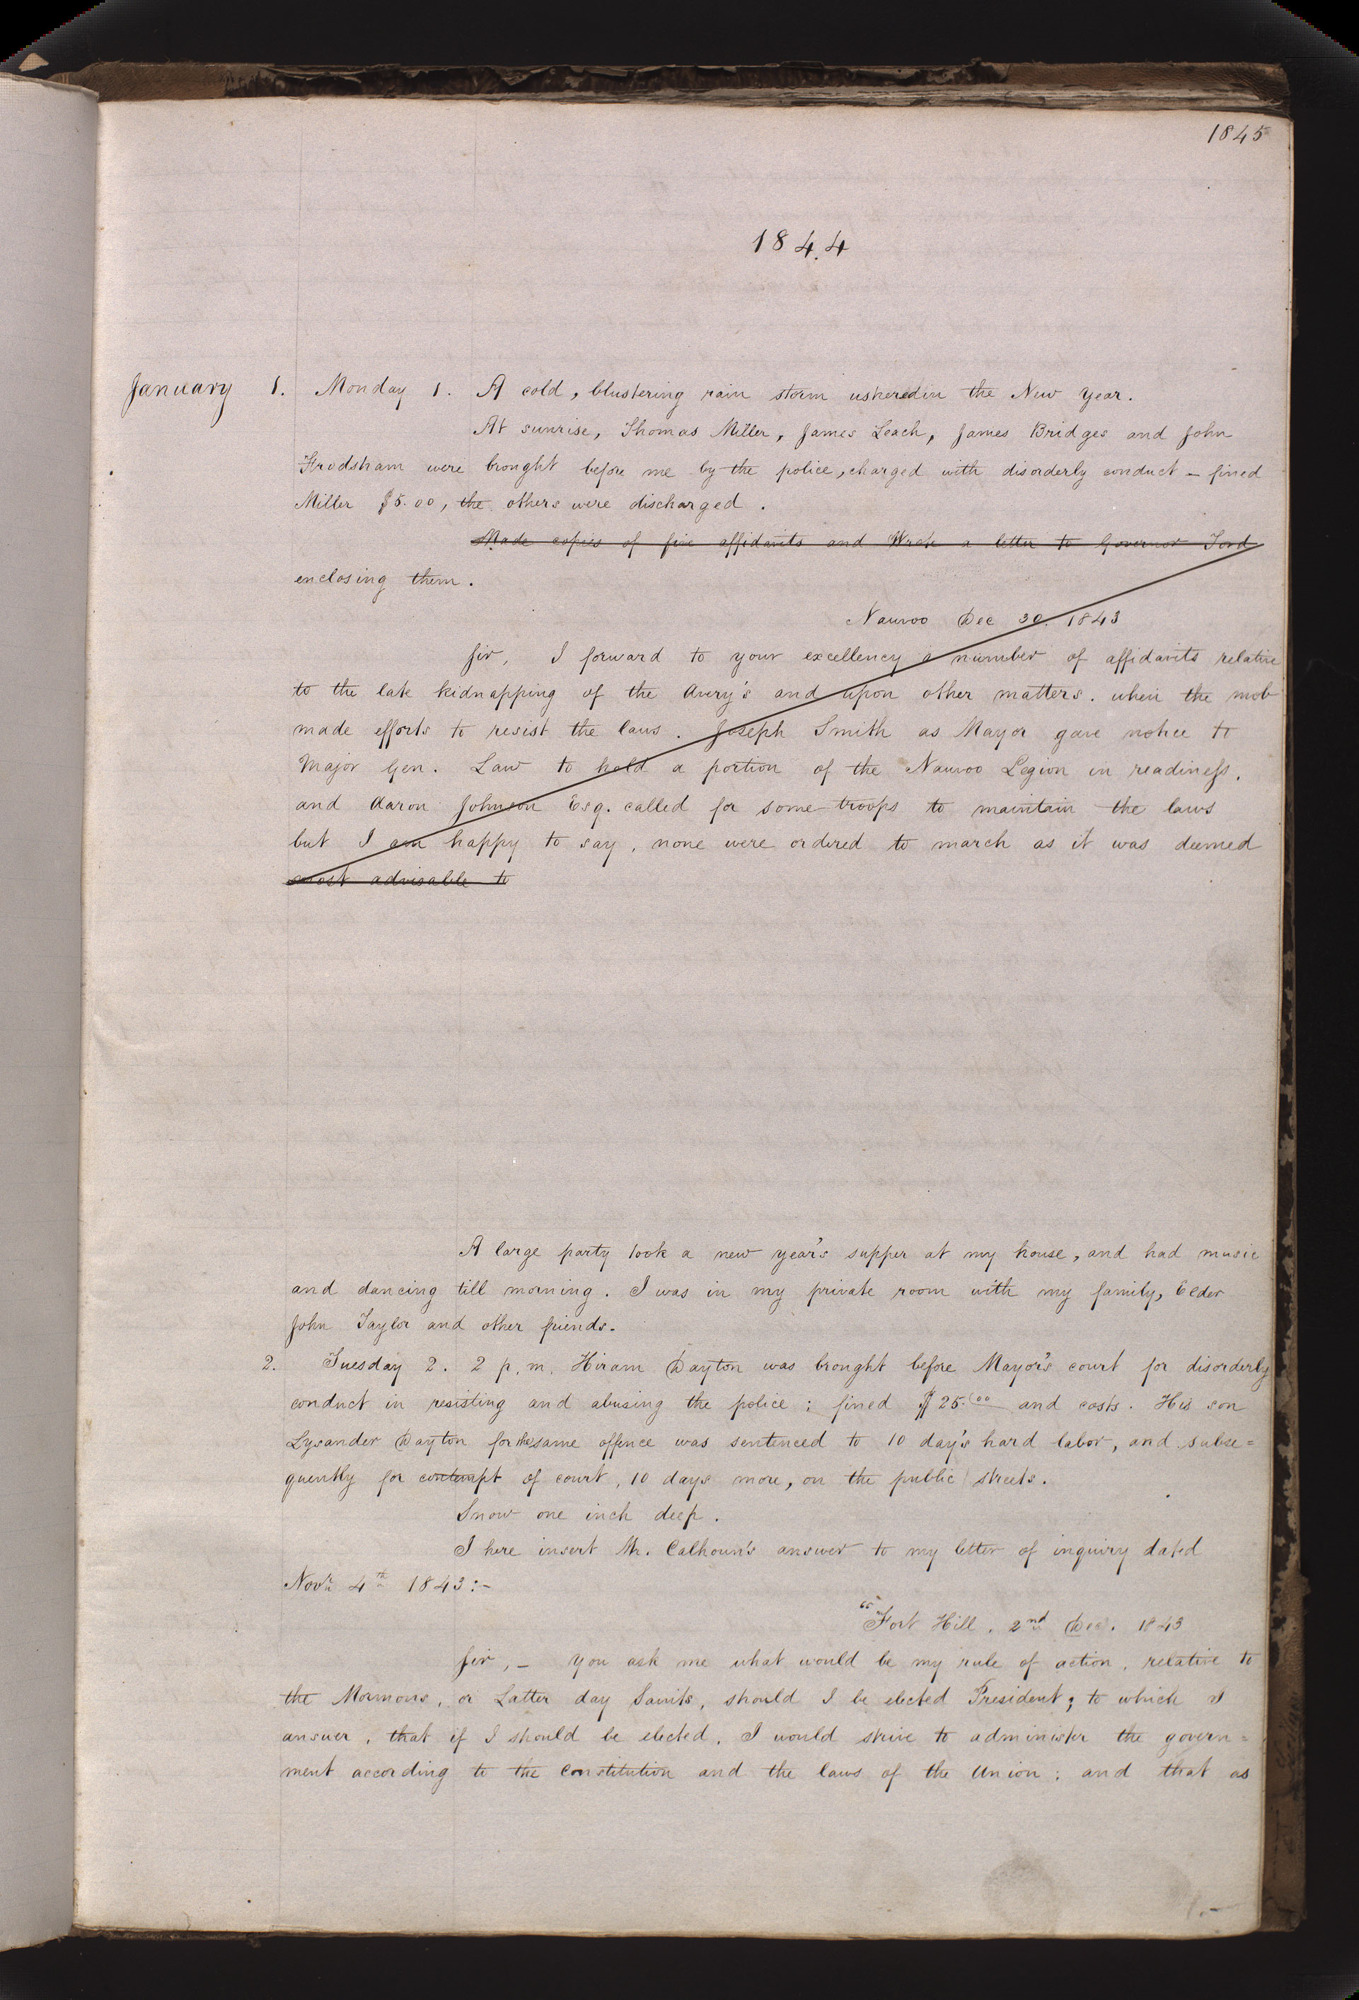 1845
1844
January 1. Monday 1. A cold, blustering rain storm usheredin the New Year.
At sunrise, Thomas Miller, James Leach, James Bridges and John
Frodsham were brought before me by the police, charged with disorderly conduct – fined
Miller $5.00, the others were discharged.
Made copies of five affidavits and Wrote a letter to Governor Ford
enclosing them.
Nauvoo Dec 30. 1843
Sir, I forward to your excellency a number of affidavits relative
to the late kidnapping of the Avery's and upon other matters. when the mob
made efforts to resist the laws. Joseph Smith as Mayor gave notice to
Major Gen. Law to hold a portion of the Nauvoo Legion in readiness.
and Aaron Johnson Esq. called for some troops to maintain the laws
but I am happy to say, none were ordered to march as it was deemed
most advisable to
A large party took a new year's supper at my house, and had music
and dancing till morning. I was in my private room with my family, Elder
John Taylor and other friends.
2. Tuesday 2. 2 p.m. Hiram Dayton was brought before Mayor's court for disorderly
conduct in resisting and abusing the police; fined $25.00 and costs. His son
Lysander Dayton for the same offence was sentenced to 10 day's hard labor, and subse=
quently for contempt of court, 10 days more, on the public streets.
Snow one inch deep.
I here insert Mr. Calhoun's answer to my letter of inquiry dated
Novr. 4th 1843:–
"Fort Hill. 2nd Dec. 1843
Sir, – You ask me what would be my rule of action, relative to
the Mormons, or Latter day Saints, should I be elected President; to which I
answer, that if I should be elected, I would strive to administer the govern=
ment according to the constitution and the laws of the Union; and that as